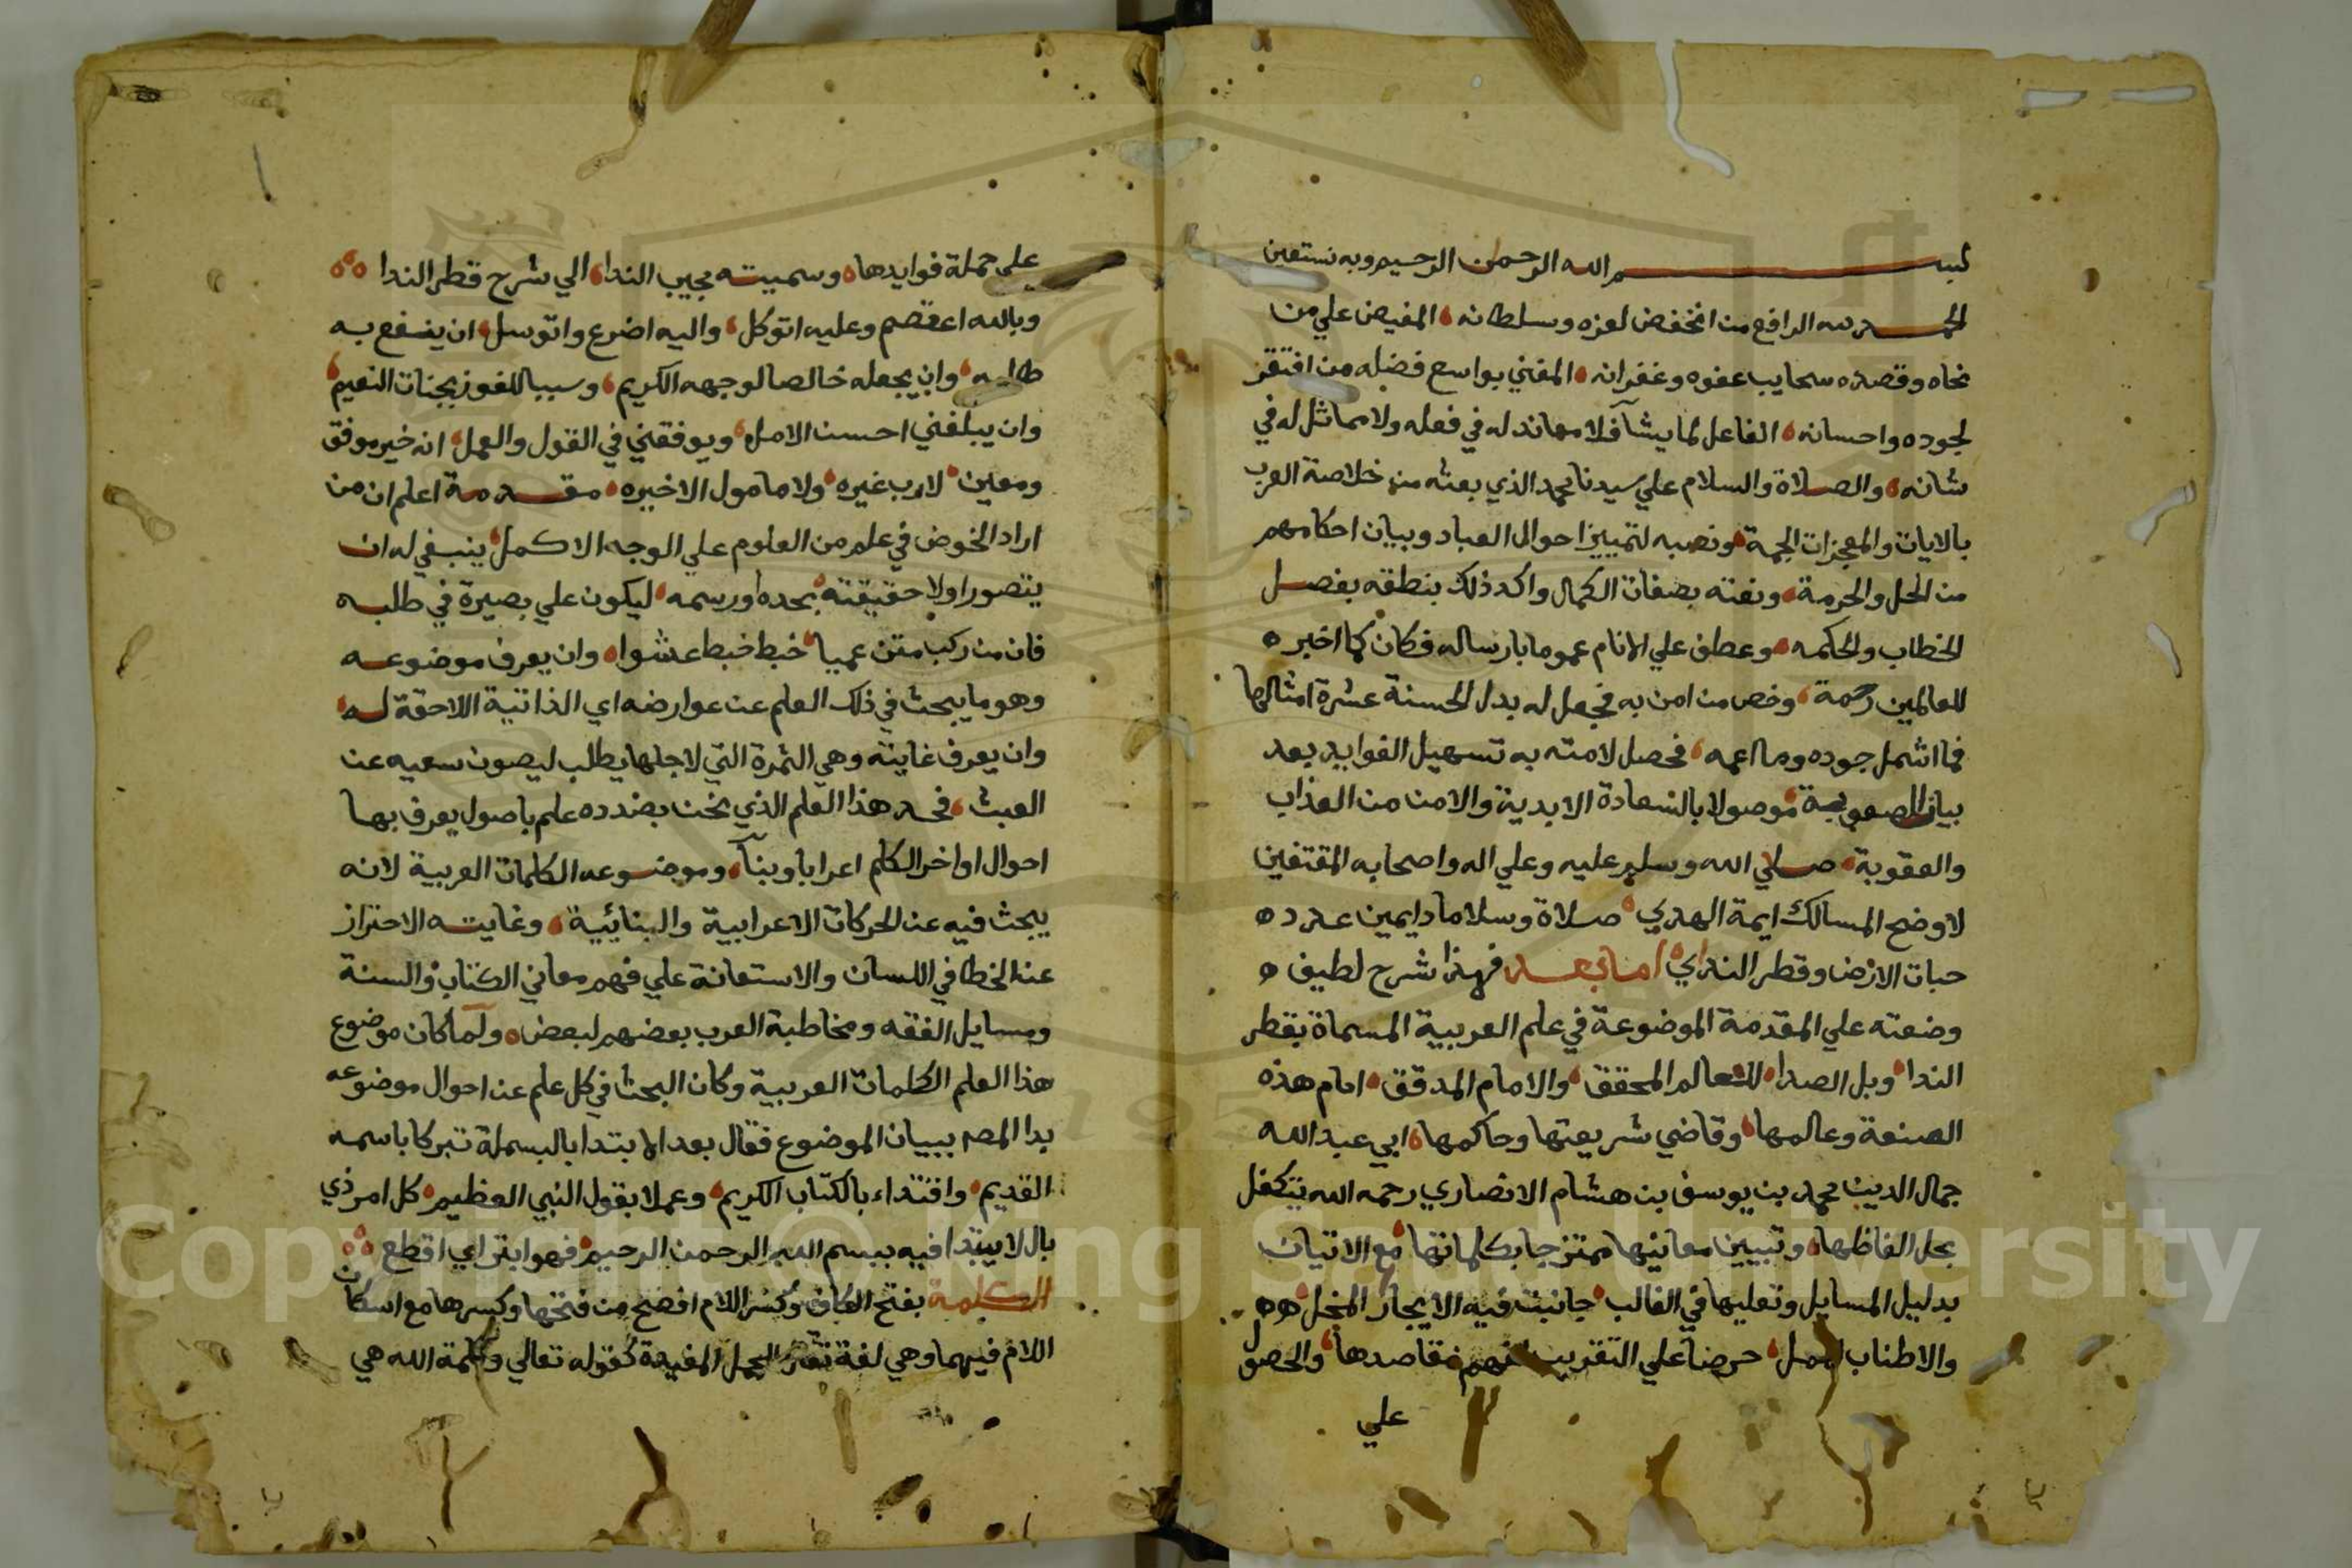 بسم الله الرحمن الرحيم وبه نستعين
الحمد لله الرافع من انخفض لعزه وسلطانه المفيض علي من
نحاه وقصده سحايب عفوه وغفرانه المغني بواسع فضله من افتقر
لجوده واحسانه الفاعل لما يشآ فلا معاند له في فعله ولا مماثل له في
شانه والصلاة والسلام علي سيدنا محمد الذي بعثه من خلاصة العرب
بالايات والمعجزات الجمة ونصبه لتمييز احوال العباد وبيان احكامهم
من الحل والحرمة ونعته بصفات الكمال واكد ذلك بنطقه بفصل
الخطاب والحكمه وعطف علي الانام عموما بارساله فكان كما اخبر
للعالمين رحمة وخص من امن به فجعل له بدل الحسنة عشرة امثالها
فما اشمل جوده وما اعمه فحصل لامته به تسهيل الفوايد بعد
بيان الصعوبة موصولا بالسعادة الابدية والامن من العذاب
والعقوبة صلي الله وسلم عليه وعلي اله واصحابه المقتفين
لاوضح المسالك ايمة الهدي صلاة وسلاما دايمين عدد
حبات الارض وقطر الندي اما بعد فهذا شرح لطيف
وضعته علي المقدمة الموضوعة في علم العربية المسماة بقطر
الندا وبل الصدا للعالم المحقق والامام المدقق امام هذه
الصنعة وعالمها وقاضي شريعتها وحاكمها ابي عبد الله
جمال الدين محمد بن يوسف بن هشام الانصاري رحمه الله يتكفل
بحل الفاظها وتبيين معانيها ممتزجا بكلماتها مع الاتيان
بدليل المسايل وتعليها في الغالب جانبت فيه الايجاز المخل
والاطناب الممل حرصا علي التقريب لفهم مقاصدها والحصول
علي
علي جملة فوايدها وسميته مجيب الندا الي شرح قطر الندا
وبالله اعتصم وعليه اتوكل واليه اضرع واتوسل ان ينفع به
طالبه وان يجعله خالصا لوجهه الكريم وسببا للفوز بجنات النعيم
وان يبلغني احسن الامل ويوفقني في القول والعمل انه خير موفق
ومعين لا رب غيره ولا مامول الا خيره مقدمة اعلم ان من
اراد الخوض في علم من العلوم علي الوجه الاكمل ينبغي له ان
يتصور اولا حقيقته بحده او رسمه ليكون علي بصيرة في طلبه
فان من ركب متن عميا خبط خبط عشوا وان يعرف موضوعه
وهو ما يبحث في ذلك العلم عن عوارضه اي الذاتية اللاحقة له
وان يعرف غايته وهي الثمرة التي لاجلها يطلب ليصون سعيه عن
العبث فحد هذا العلم الذي نحن بصدده علم باصول يعرف بها
احوال اواخر الكلم اعرابا وبنآ وموضوعه الكلمات العربية لانه
يبحث فيه عن الحركات الاعرابية والبنائية وغايته الاحتراز
عن الخطا في اللسان والاستعانة علي فهم معاني الكتاب والسنة
ومسايل الفقه ومخاطبة العرب بعضهم لبعض ولما كان موضوع
هذا العلم الكلمات العربية وكان البحث في كل علم عن احوال موضوعه
بدا المصـ ببيان الموضوع فقال بعد الابتدا بالبسملة تبركا باسمه
القديم واقتداء بالكتاب الكريم وعملا بقول النبي العظيم كل امر ذي
بال لا يبتدا فيه ببسم الله الرحمن الرحيم فهو ابتر اي اقطع
الكلمة بفتح الكاف وكسر اللام افصح من فتحها وكسرها مع اسكان
اللام فيهما وهي لغة الجمل المفيدة كقوله تعالي وكلمة الله هي
Copyright © King Saud University